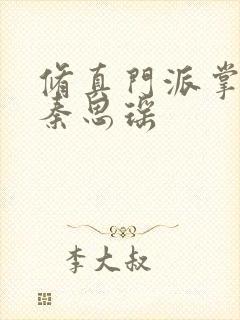 脩真門派掌
秦思瑶
李大叔